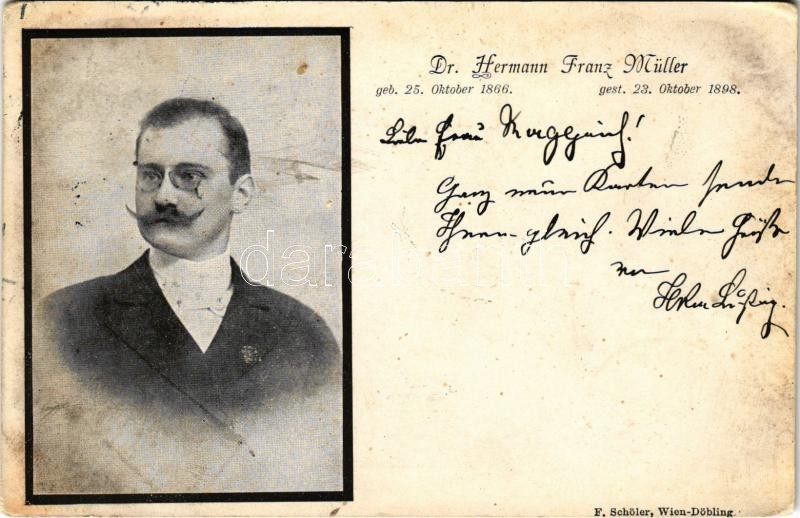 Dr. Hermann Franz Müller
geb. 25. Oktober 1866. gest. 23. Oktober 1898.
Liebe Frau
Ganz neue Karten sende
Ihnen gleich. Viele Grüße
von
darabanth
F. Schöler, Wien-Döbling.